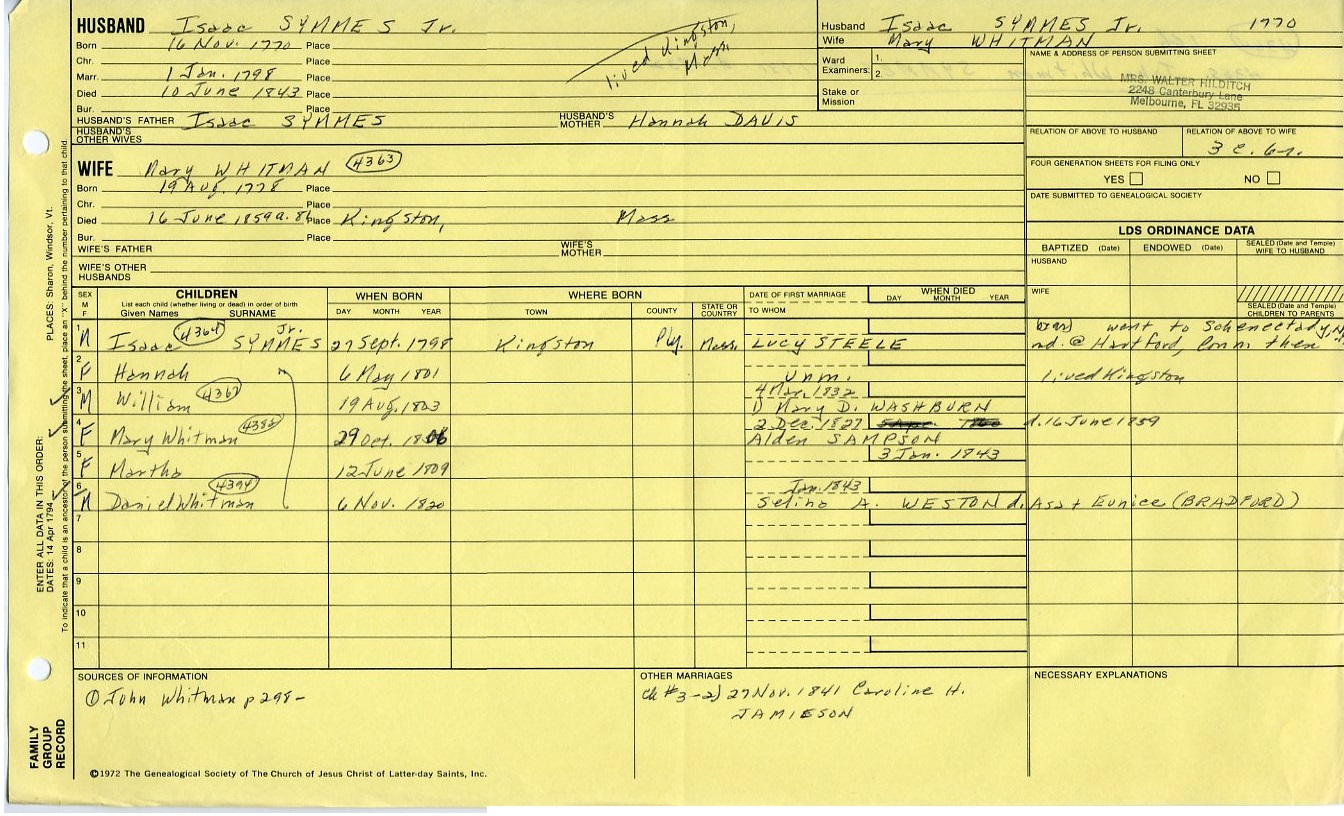 HUSBAND Isaac SYMMES Jr.
Born 16 Nov. 1770 Place
Chr. Place
Marr. 1 Jan. 1798 Place
Died 10 June 1843 Place
Bur. Place
HUSBAND'S FATHER Isaac SYMMES HUSBAND'S MOTHER Hannah DAVIS
HUSBAND'S OTHER WIVES
lived Kingston,
Mass.
Husband Isaac SYMMES Jr. 1770
Wife Mary WHITMAN
Ward 1.
Examiners: 2.
Stake or
Mission
NAME & ADDRESS OF PERSON SUBMITTING SHEET
MRS. WALTER HILDITCH
2248 Canterbury Lane
Melbourne, FL 32935
RELATION OF ABOVE TO HUSBAND RELATION OF ABOVE TO WIFE
3 c. 6r.
FOUR GENERATION SHEETS FOR FILING ONLY
YES NO
DATE SUBMITTED TO GENEALOGICAL SOCIETY
WIFE Mary WHITMAN 4363
Born 19 Aug. 1778 Place
Chr. Place
Died 16 June 1859 a. 86 Place Kingston, Mass
Bur. Place
WIFE'S FATHER WIFE'S MOTHER
WIFE'S OTHER HUSBANDS
LDS ORDINANCE DATA
BAPTIZED (Date) ENDOWED (Date) SEALED (Date and Temple) WIFE TO HUSBAND
HUSBAND
WIFE
SEALED (Date and Temple) CHILDREN TO PARENTS
SEX M F CHILDREN WHEN BORN WHERE BORN DATE OF FIRST MARRIAGE WHEN DIED
List each child (whether living or dead) in order of birth
Given Names SURNAME DAY MONTH YEAR TOWN COUNTY STATE OR COUNTRY TO WHOM DAY MONTH YEAR
1 M Isaac 4364 SYMMES Jr. 27 Sept. 1798 Kingston Ply. Mass. LUCY STEELE went to Schenectady, N.Y.
md. @ Hartford, Conn then
2 F Hannah 6 May 1801 Unm. lived Kingston
3 M William 4367 19 Aug. 1803 4 Mar. 1832
1) Mary D. WASHBURN
4 F Mary Whitman 4382 29 Oct. 1806 2 Dec. 1827 d. 16 June 1859
Alden SAMPSON
5 F Martha 12 June 1809 3 Jan. 1843
6 M Daniel Whitman 4394 6 Nov. 1820 Jan. 1843
Selina A. WESTON d. Asa + Eunice (BRADFORD)
7
8
9
10
11
SOURCES OF INFORMATION
① John Whitman p 298-
OTHER MARRIAGES
ch #3-2) 27 Nov. 1841 Caroline H.
JAMIESON
NECESSARY EXPLANATIONS
©1972 The Genealogical Society of The Church of Jesus Christ of Latter-day Saints, Inc.
FAMILY
GROUP
RECORD
ENTER ALL DATA IN THIS ORDER:
DATES: 14 Apr 1794
PLACES: Sharon, Windsor, Vt.
To indicate that a child is an ancestor of the person submitting the sheet, place an "X" behind the number pertaining to that child.